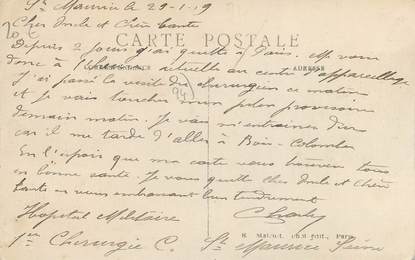 St Maurice le 29-1-19
Cher Oncle et Chère Tante
70 €
CARTE POSTALE
Depuis 2 jours j'ai quitté Paris. Me voici
donc à l' actuelle au centre d'appareillage
ADRESSE
J'ai passé la visite du chirurgien ce matin
(94)
et je vais toucher mon pilon provisoire
demain matin. Je vais m'entrainer dur
car il me tarde d'aller à Bois-Colombes
En l'espoir que ma carte vous trouvera tous
en bonne santé. Je vous quitte cher Oncle et Chère
Tante en vous embrassant bien tendrement
Hopital Militaire
Charley
R. Malcuit, Phot. édit., Paris
1ère Chirurgie C. St Maurice Seine